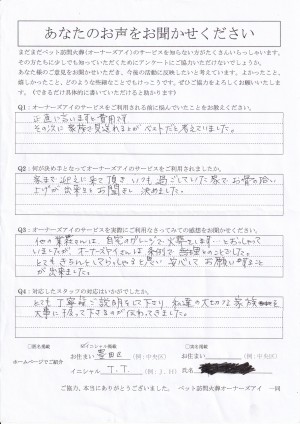 あなたのお声をお聞かせください
まだまだペット訪問火葬(オーナーズアイ)のサービスを知らない方がたくさんいらっしゃいます。
その方たちに少しでも知っていただくためにアンケートにご協力いただけないでしょうか。
あなた様のご意見をお聞かせいただき、今後の活動に反映したいと考えています。よかったこと、
嬉しかったこと、どのような些細なことでもけっこうです。ぜひご協力をよろしくお願いいたします。
(できるだけ具体的に書いていただけると助かります)
Q1:オーナーズアイのサービスをご利用される前に悩んでいたことをお教えください。
正直に言いますと費用です
その次に家族で見送れるとが ベストだと考えていました。
Q2:何が決め手となってオーナーズアイのサービスをご利用されましたか。
家まで迎えに来て頂き いつも過ごしていた家で お骨の拾い
上げが出来るとお聞きし 決めました。
Q3:オーナーズアイのサービスを実際にご利用なさってみての感想をお聞かせください。
他の業社さんは、自宅のガレージで火葬をします…とおっしゃって
いましたが、オーナーズアイさんは 条例で 無理とのことでした。
とても きちんとしてらっしゃると思い 安心して お願いすること
が出来ました。
Q4:対応したスタッフの対応はいかがでしたか。
とても丁寧にご説明をして下さり 私達の大切な家族
大事に扱って下さるのが伝わってきました。
□匿名掲載 イニシャル掲載 □実名掲載
ホームページでご紹介
お住まい 豊田区 (例:中央区) お住まい (例:中央区)
イニシャル T.T. (例:J.H) 氏名
ご協力、本当にありがとうございました。 ペット訪問火葬オーナーズアイ 一同